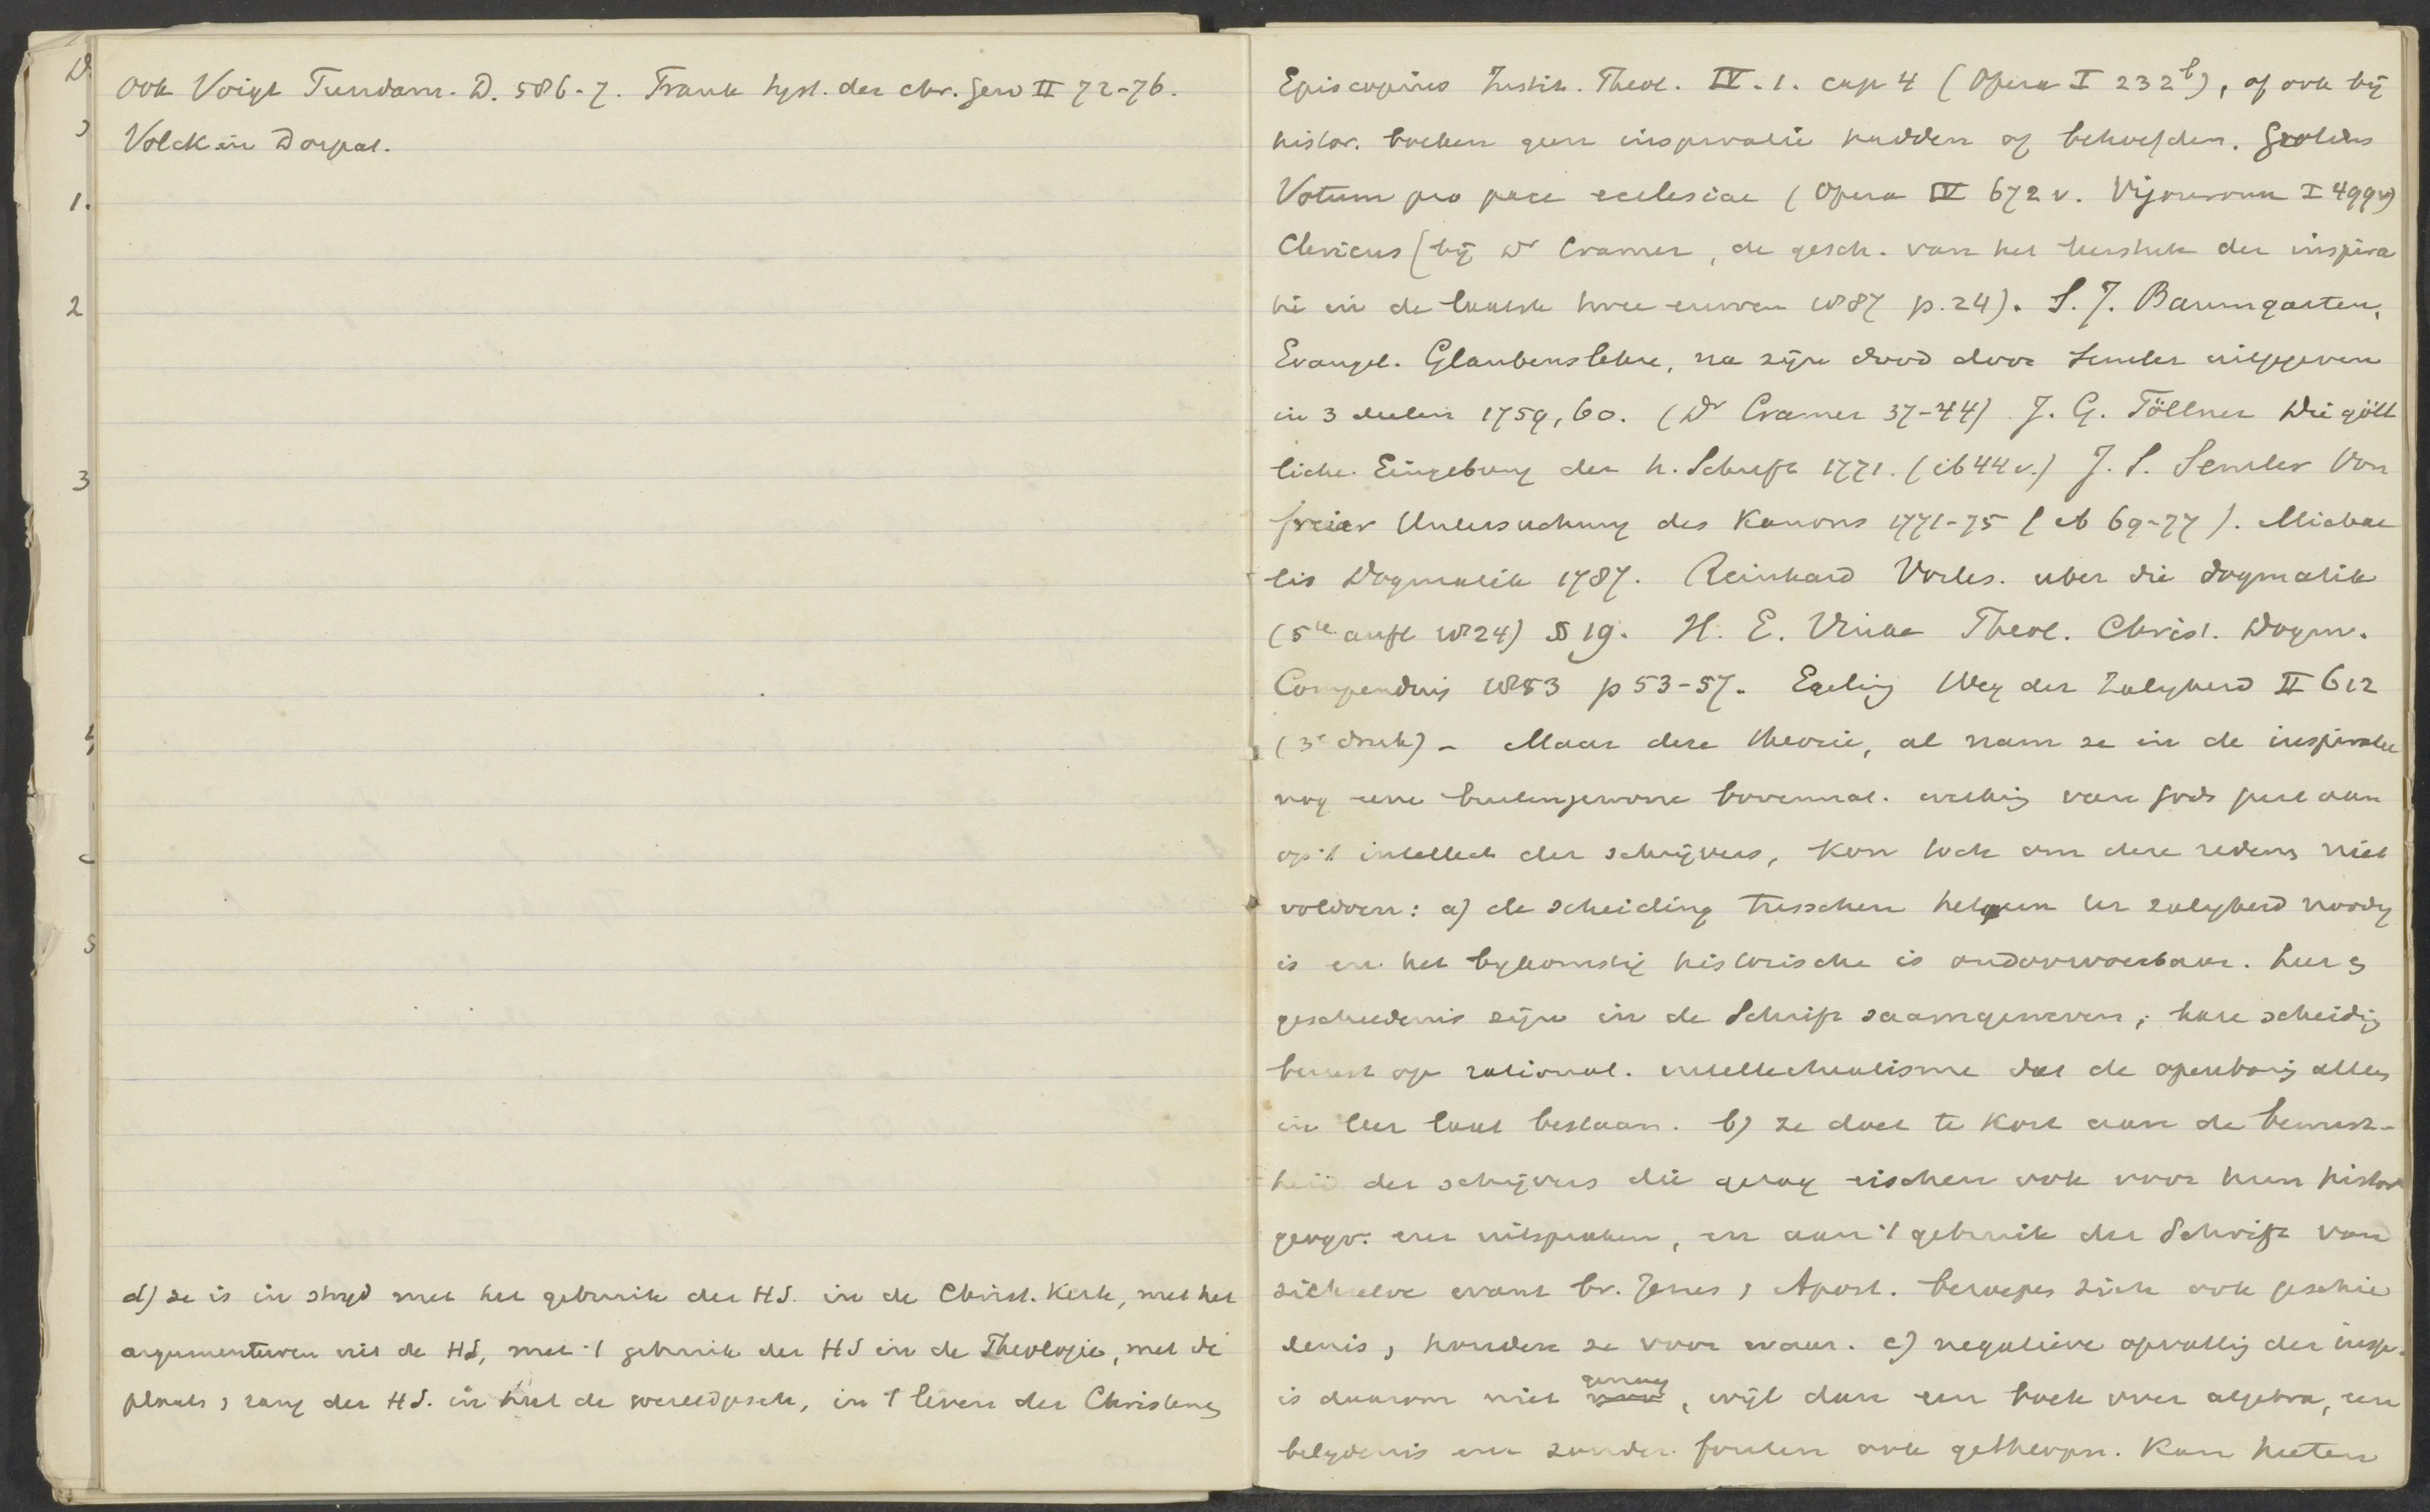 ook Voigt Fundam. D. 586-7. Frank Syst. der chr. Gew II 72-76.
Volck in Dorpat.
d) ze is in stryd met het gebruik der HS. in de Christ. Kerk, met het
argumenteren uit de HS, met 't gebruik der HS in de Theologie, met de
plaats, rang der HS. in heel de wereldgesch, in 't leven der Christeng
Episcopius Instit. Theol. IV. 1. cap 4 (Opera I 232b), of ook bij
histor. boeken geen inspiratie hadden of behoefden. Grotius
Votum pro pace ecclesiae (Opera IV 672 v. Vigouroux I 499v)
Clericus (bij Dr Cramer, de gesch. van het leerstuk der inspira
tie in de laatste twee eeuwen 1887 p. 24). S. J. Baumgarten,
Evangel. Glaubenslehre, na zijn dood door Semler uitgegeven
in 3 deelen 1759, 60. (Dr Cramer 37-44) J. G. Töllner Die gött
liche Eingebung der h. Schrift 1771. (ib 44 v.) J. S. Semler Von
freier Untersuchung des Kanons 1771-75 (ib 69-77). Michae
lis Dogmatik 1787. Reinhard Vorles. uber die dogmatik
(5te aufl 1824) § 19. H. E. Vinke Theol. Christ. Dogm.
Compenduis 1853 p 53-57. Egeling Weg der Zalyheid II 612
(3e druk) - Maar deze theorie, al nam ze in de inspiratie
nog eene buitengewone bovennat. werking van Gods geest aan
op 't intellect der schrijvers, kon toch om deze redens niet
voldoen: a) de scheiding tusschen hetgeen ter zalyheid noody
is en het bykomstig historische is ondoorvoerbaar. Leer &
geschiedenis zijn in de Schrift saamgeweven; hare scheidig
berust op rational. intellectualisme dat de openbarig alleen
in leer laat bestaan. b) ze doet te kort aan de bewust-
heid der schrijvers die gezag eischen ook voor hun histor
geogr. enz uitspraken, en aan 't gebruik der Schrift van
zichzelve want bv. Jezus, Apost. beroepen zich ook geschie
denis, houden ze voor waar. c) negatieve opvattig der insp.
is daarom niet genoeg, wijl dan een boek over algebra, een
belydenis enz zonder fouten ook getheopn. kan heeten